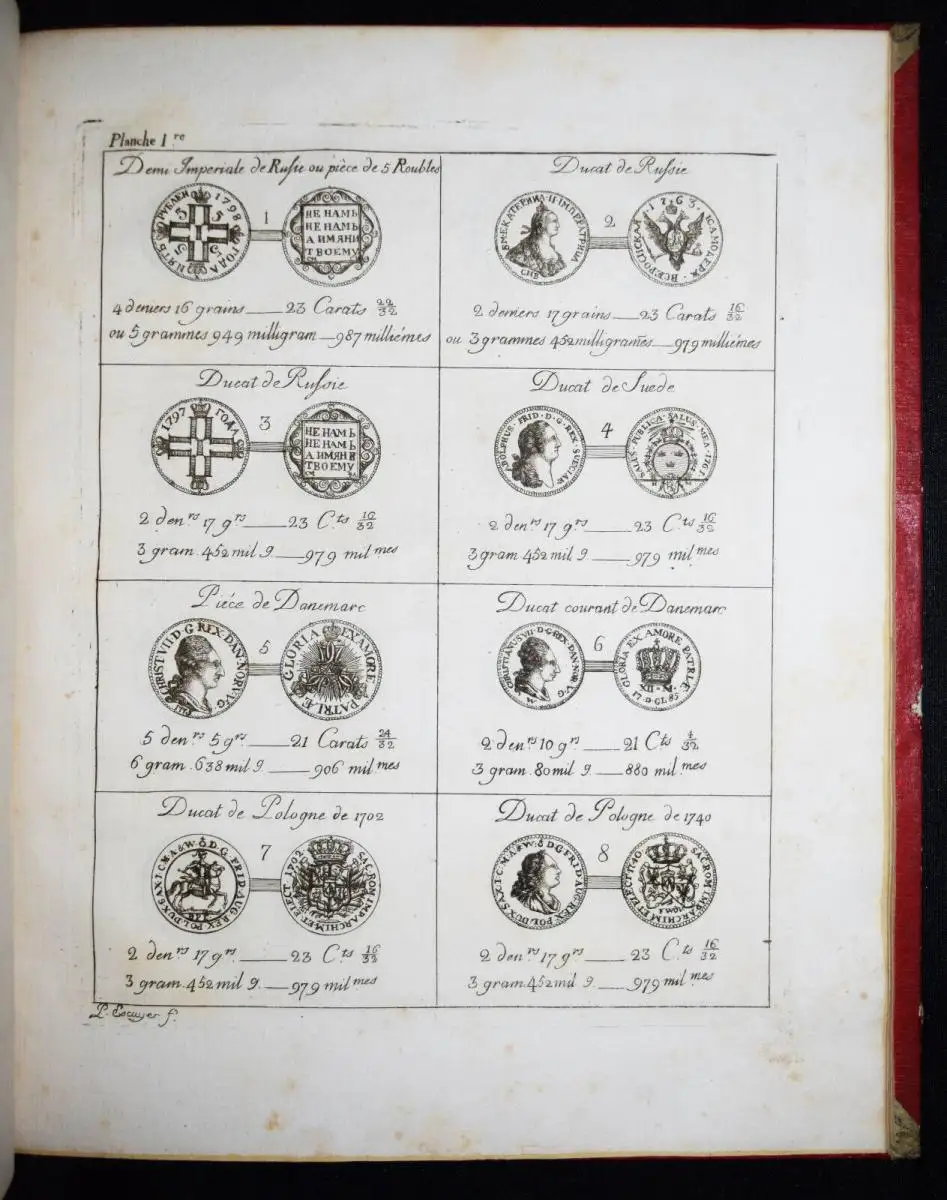 Planche I.re
Demi Imperiale de Russie ou pièce de 5 Roubles
ПЯТЬ РУБЛЕЙ 1798 ГОДА
5 5 5 5
1
НЕ НАМЪ
НЕ НАМЪ
А ИМЯНИ
ТВОЕМУ
4 deniers 16 grains __ 23 Carats 22/32
ou 5 grammes 949 milligram __ 987 milliémes
Ducat de Russie
ЕКАТЕРИНА·II·IМПЕРАТРИЦА
СПБ
2
1763
ІСАМОДЕРЖ· ВСЕРОСИСКАЯ
2 deniers 17 grains __ 23 Carats 16/32
ou 3 grammes 452 milligrames __ 979 milliémes
Ducat de Russie
1797 ГОДА
3
НЕ НАМЪ
НЕ НАМЪ
А ИМЯНИ
ТВОЕМУ
2 den.rs 17 g.rs __ 23 C.ts 16/32
3 gram. 452 mil g. __ 979 mil.mes
Ducat de Suede
ADOLPHUS·FRID·D·G·REX·SUECIAE
4
SALUS·PUBLICA·SALUS·MEA·1761
2 den.rs 17 g.rs __ 23 C.ts 16/32
3 gram. 452 mil g. __ 979 mil.mes
Piéce de Danemarc
CHRIST·VII·D·G·REX·DAN·NORV·V·G
5
GLORIA EX AMORE PATRIÆ
5 den.rs 5 g.rs __ 21 Carats 24/32
6 gram. 638 mil g. __ 906 mil.mes
Ducat courant de Danemarc
CHRISTIANUS·VII·D·G·REX·DAN·NOR·V·G
W
6
GLORIA EX AMORE PATRIÆ
XII·M·
17·D·CL·85
2 den.rs 10 g.rs __ 21 C.ts 4/32
3 gram. 80 mil g. __ 880 mil.mes
Ducat de Pologne de 1702
D·G·FRID·AUG·REX·POL·DUX·SAX·I·C·M·A&W·
7
SAC·ROM·IMP·ARCHIM·ET·ELECT·1702
2 den.rs 17 g.rs __ 23 C.ts 16/32
3 gram. 452 mil g. __ 979 mil.mes
Ducat de Pologne de 1740
D·G·FRID·AUG·REX·POL·DUX·SAX·I·C·M·A&W·
8
SAC·ROM·IMP·ARCHIM·ET·ELECT·1740
2 den.rs 17 g.rs __ 23 C.ts 16/32
3 gram. 452 mil g. __ 979 mil.mes
P. Escuyer f.